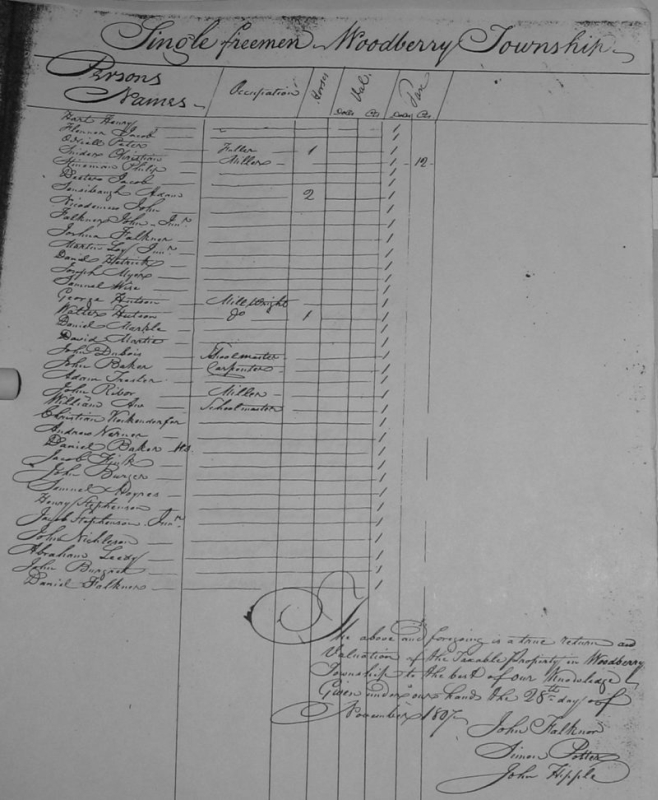 Single freemen Woodberry Township
Persons Names Occupation Horses Val. Tax
Dolls Cts Dolls Cts
Hart Henry 1
Jacob 1
Peter Fuller 1 1
Christian Miller 1 12
Philip 1
Jacob 1
Adam 2 1
John 1
Falkner John Junr. 1
Joshua Falkner 1
Martin Loy Junr. 1
David 1
Joseph Myers 1
Samuel Wise 1
George Hutson Mill Wright 1
Walter Hutson Do 1 1
Daniel Markle 1
David Martin 1
John Dubois Schoolmaster 1
John Baker Carpenter 1
Adam 1
John Miller 1
William Schoolmaster 1
Christian 1
Andrew 1
Daniel Baker 1
Jacob 1
John Burger 1
Samuel Haynes 1
Henry Stephenson 1
Jacob Stephenson Junr. 1
John Nichleson 1
Abraham 1
John 1
Daniel Falkner 1
The above and foregoing is a true return and
Valuation of the Taxable Property in Woodberry
Township to the best of our Knowledge
Given under our hands the 28th day of
November 1807
John Falknor
Simon Potter
John Hipple